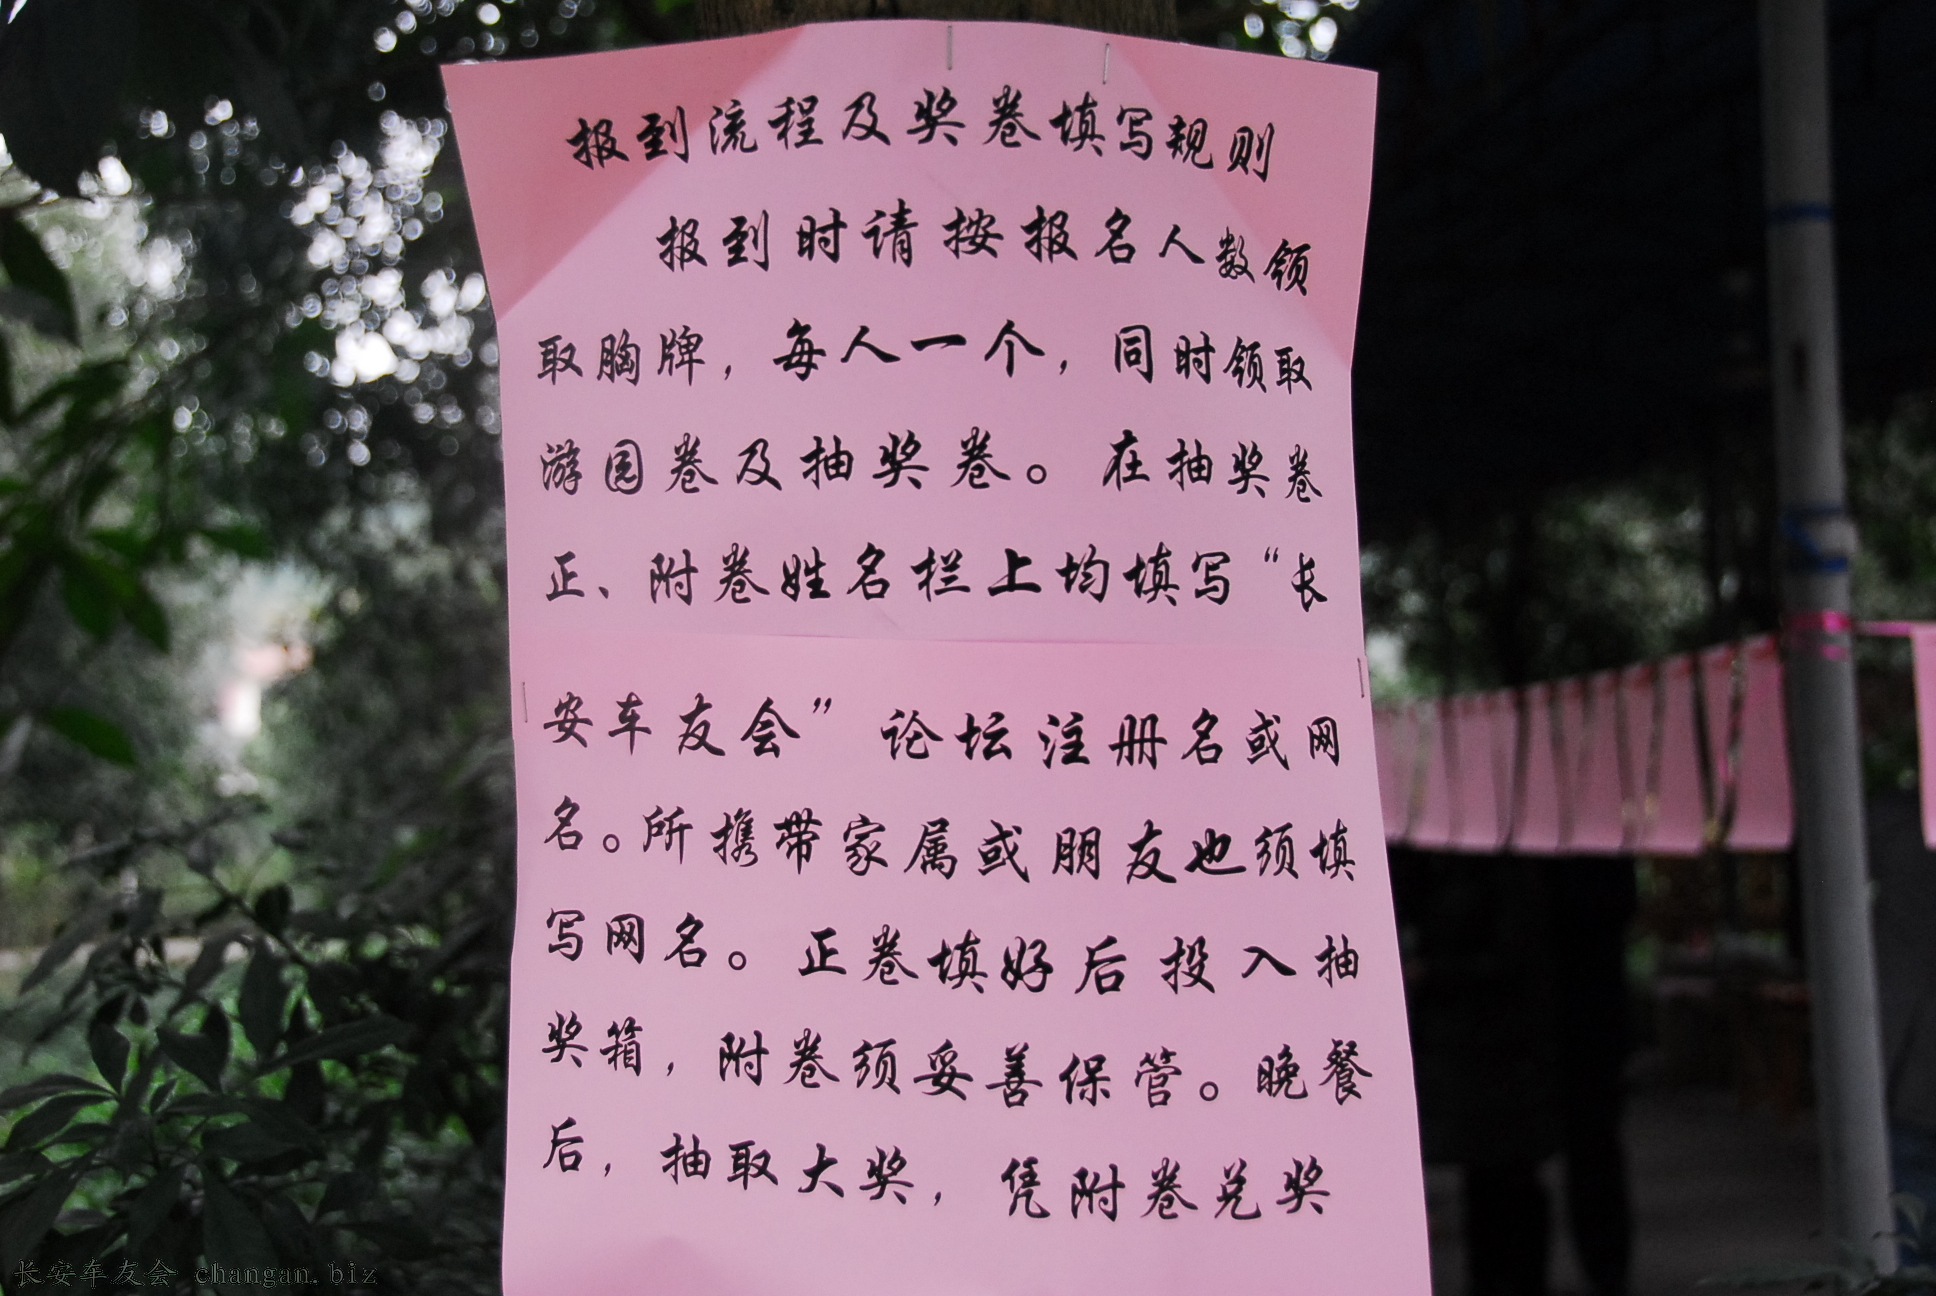 报到流程及奖卷填写规则
报到时请按报名人数领
取胸牌，每人一个，同时领取
游园卷及抽奖卷。在抽奖卷
正、附卷姓名栏上均填写“长
安车友会”论坛注册名或网
名。所携带家属或朋友也须填
写网名。正卷填好后投入抽
奖箱，附卷须妥善保管。晚餐
后，抽取大奖，凭附卷兑奖
长安车友会 changan.biz